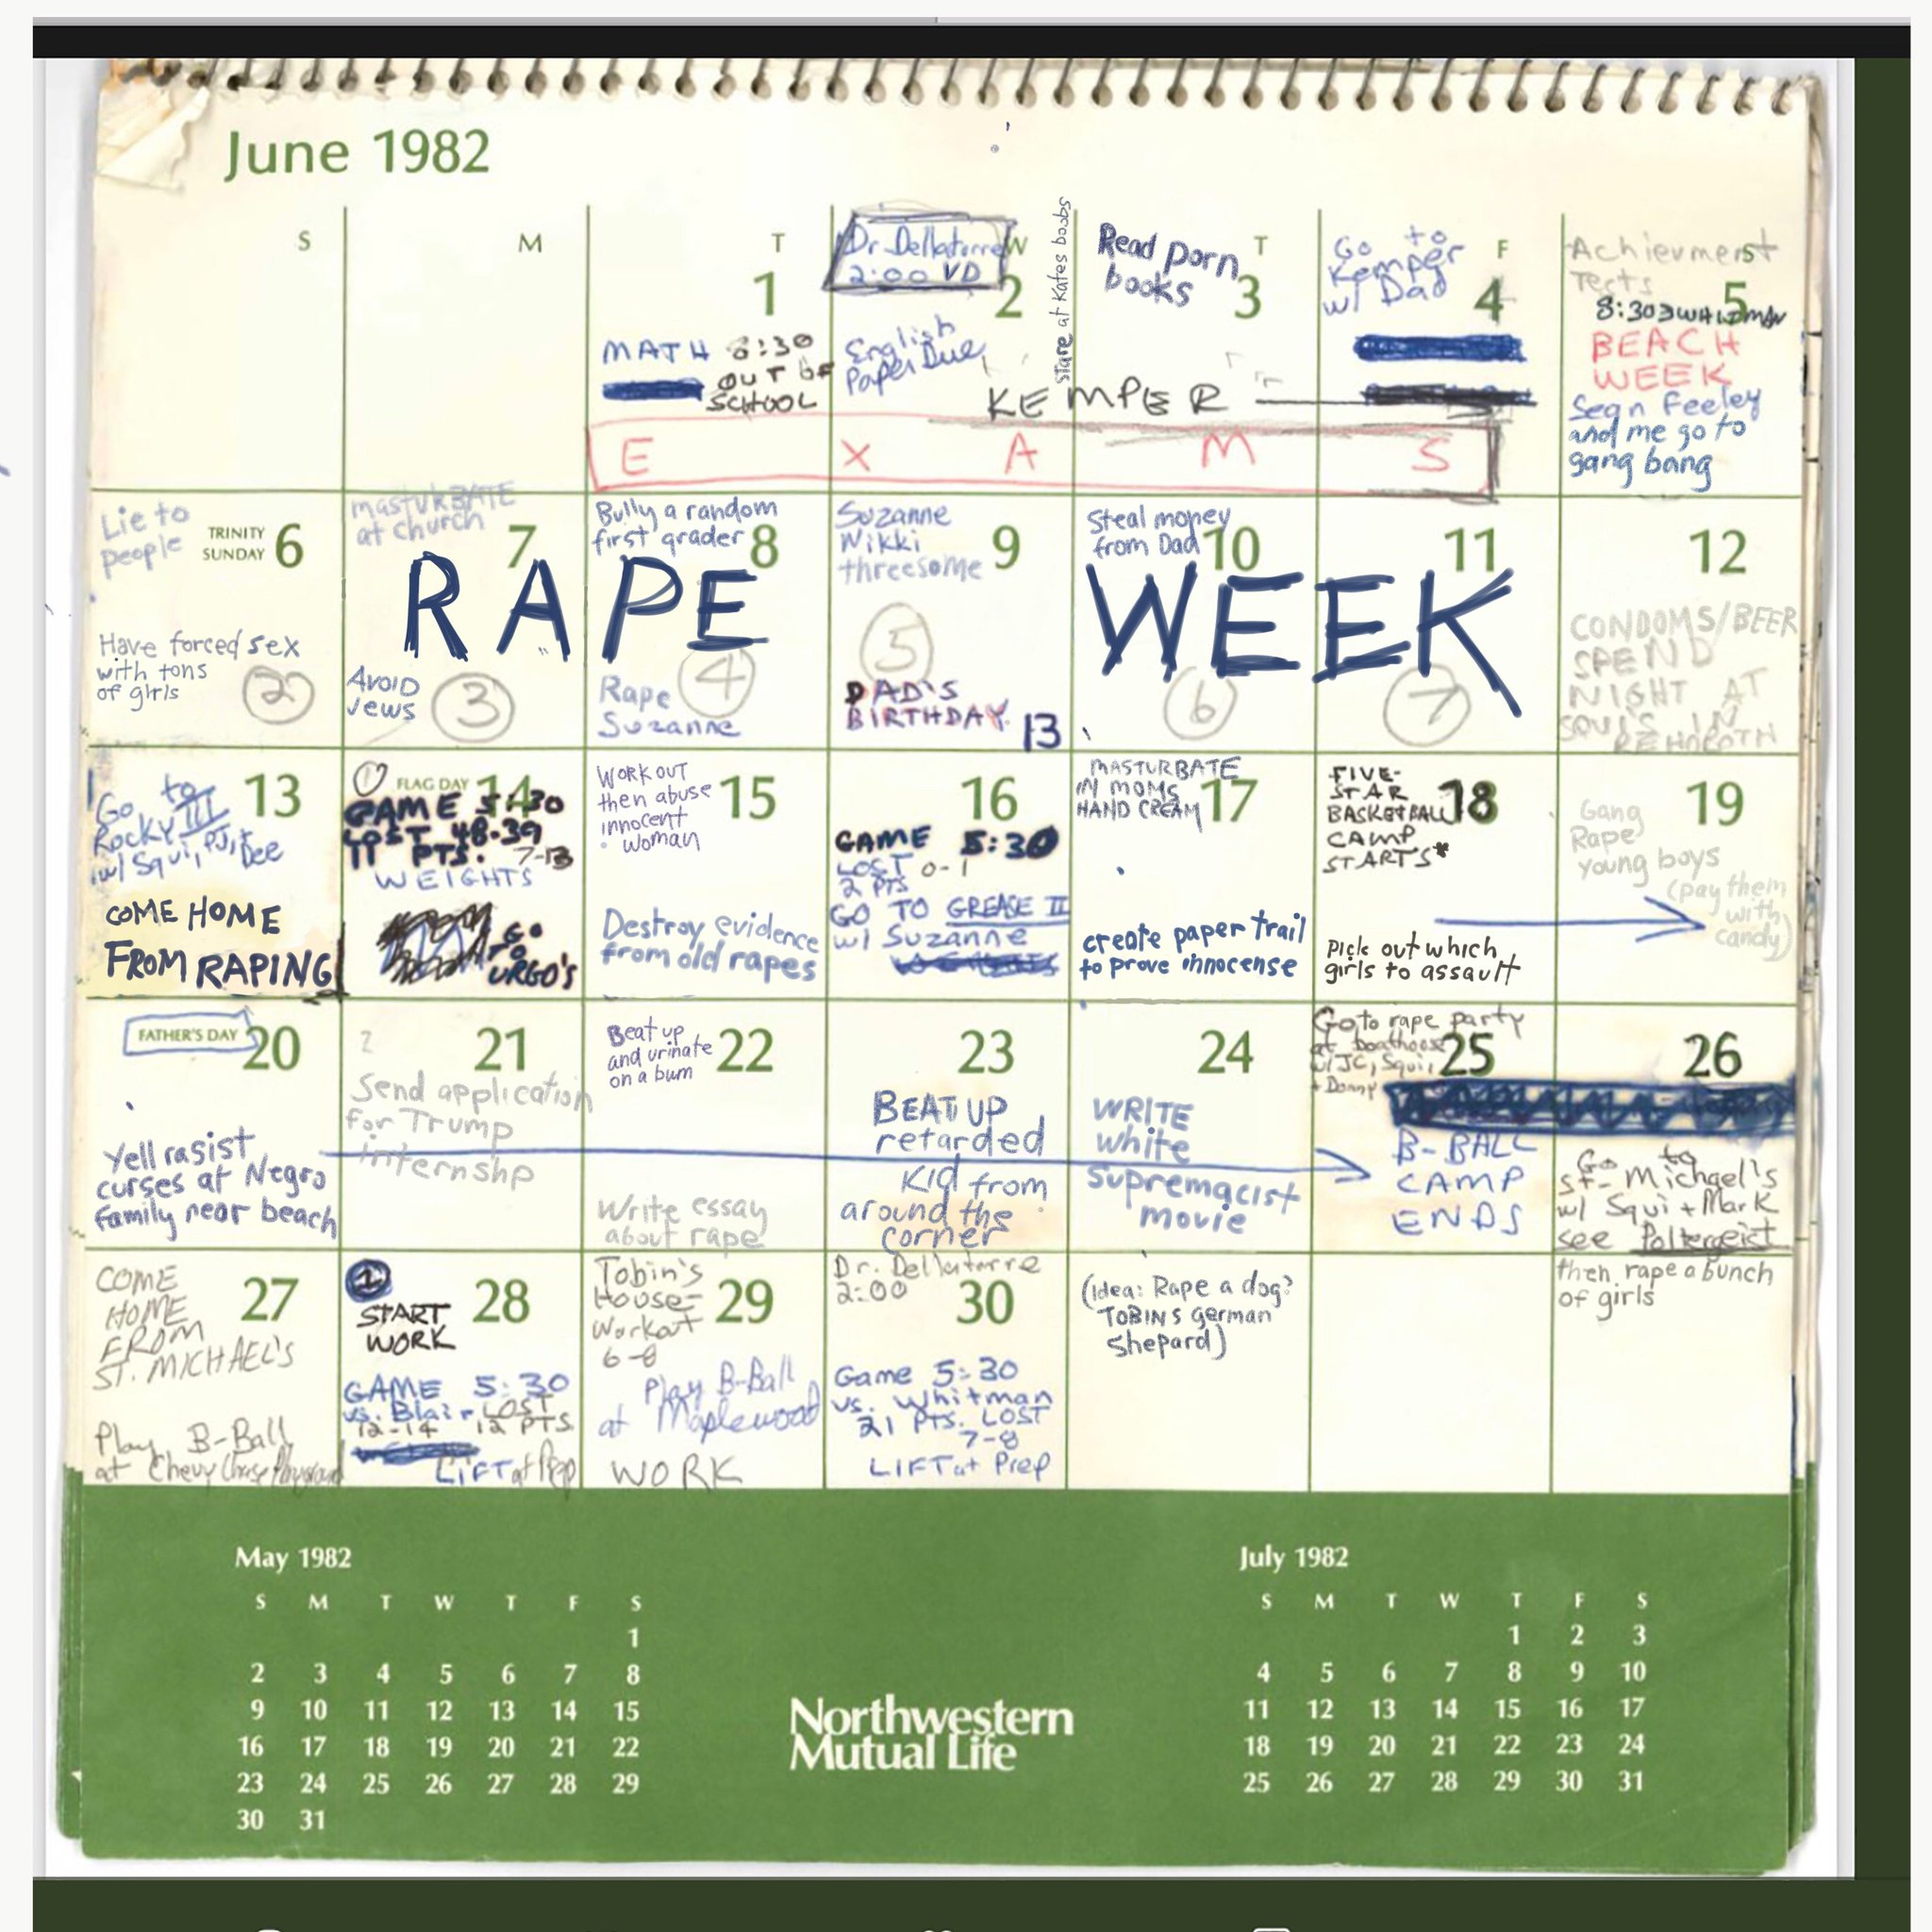 June 1982
S
M
T
1
MATH 8:30
OUT OF
SCHOOL
Dr. Dellatorre
2:00 VD
W
2
English
Paper Due
Stare at Kates boobs
Read porn
books
T
3
KEMPER
Go to
Kemper
w/ Dad
F
4
Achievment
Tests
S
5
8:30 WHITMAN
BEACH
WEEK
Sean Feeley
and me go to
gang bang
E X A M S
Lie to
people
TRINITY
SUNDAY
6
Have forced sex
with tons
of girls
2
mastURBATE
at church
7
AVOID
Jews
3
RAPE WEEK
Bully a random
first grader
8
Rape
Suzanne
4
Suzanne
Nikki
threesome
9
5
DAD'S
BIRTHDAY
13
Steal money
from Dad
10
6
11
7
12
CONDOMS/BEER
SPEND
NIGHT AT
SQUI'S IN
REHOBOTH
13
Go to
Rocky III
w/ Squi, PJ, + Dee
COME HOME
FROM RAPING
1
FLAG DAY
14
GAME 5:30
LOST 48-39
11 PTS. 7-13
WEIGHTS
GO
TO
URGO'S
WORK OUT
then abuse
innocent
woman
15
Destroy evidence
from old rapes
16
GAME 5:30
LOST 0-1
2 PTS
GO TO GREASE II
w/ Suzanne
MASTURBATE
IN MOMS
HAND CREAM
17
create paper trail
to prove innocense
FIVE-
STAR
BASKETBALL
CAMP
STARTS*
18
Pick out which
girls to assault
19
Gang
Rape
young boys
(pay them
with
candy)
FATHER'S DAY
20
Yell rasist
curses at Negro
family near beach
2
21
Send application
for Trump
internshp
Beat up
and urinate
on a bum
22
Write essay
about rape
23
BEAT UP
retarded
Kid from
around the
corner
24
WRITE
white
Supremacist
movie
Go to rape party
at boathouse
w/ JC, Squi,
+ Donny
25
B-BALL
CAMP
ENDS
26
Go to
St. Michael's
w/ Squi + Mark
see Poltergeist
then rape a bunch
of girls
COME
HOME
FROM
ST. MICHAEL'S
27
Play B-Ball
at Chevy Chase Playground
1
28
START
WORK
GAME 5:30
vs. Blair LOST
12-14 12 PTS
LIFT at Prep
Tobin's
House-
Workout
6-8
29
Play B-Ball
at Maplewood
WORK
Dr. Dellatorre
2:00
30
Game 5:30
vs. Whitman
21 PTS. LOST
7-8
LIFT at Prep
(Idea: Rape a dog?
TOBINS german
shepard)
May 1982
S M T W T F S
1
2 3 4 5 6 7 8
9 10 11 12 13 14 15
16 17 18 19 20 21 22
23 24 25 26 27 28 29
30 31
Northwestern
Mutual Life
July 1982
S M T W T F S
1 2 3
4 5 6 7 8 9 10
11 12 13 14 15 16 17
18 19 20 21 22 23 24
25 26 27 28 29 30 31